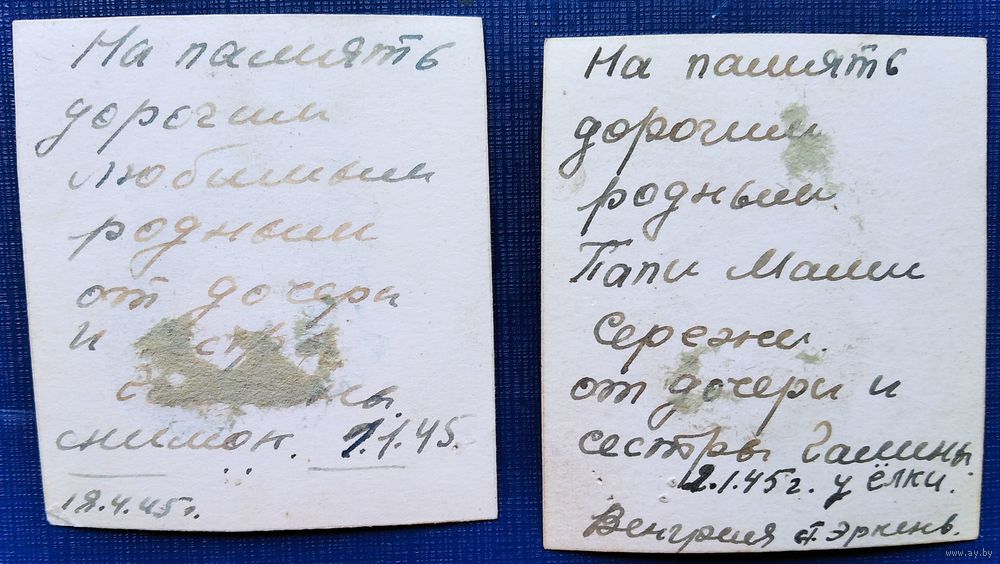 На память
дорогим
любимым
родным
от дочери
и
снимок. 2.1.45.
18.4.45г.
На память
дорогим
родным
Папи Мами
Сережи.
от дочери и
сестры Галины
2.1.45г. у ёлки.
Венгрия ст. Эркень.
www.ay.by